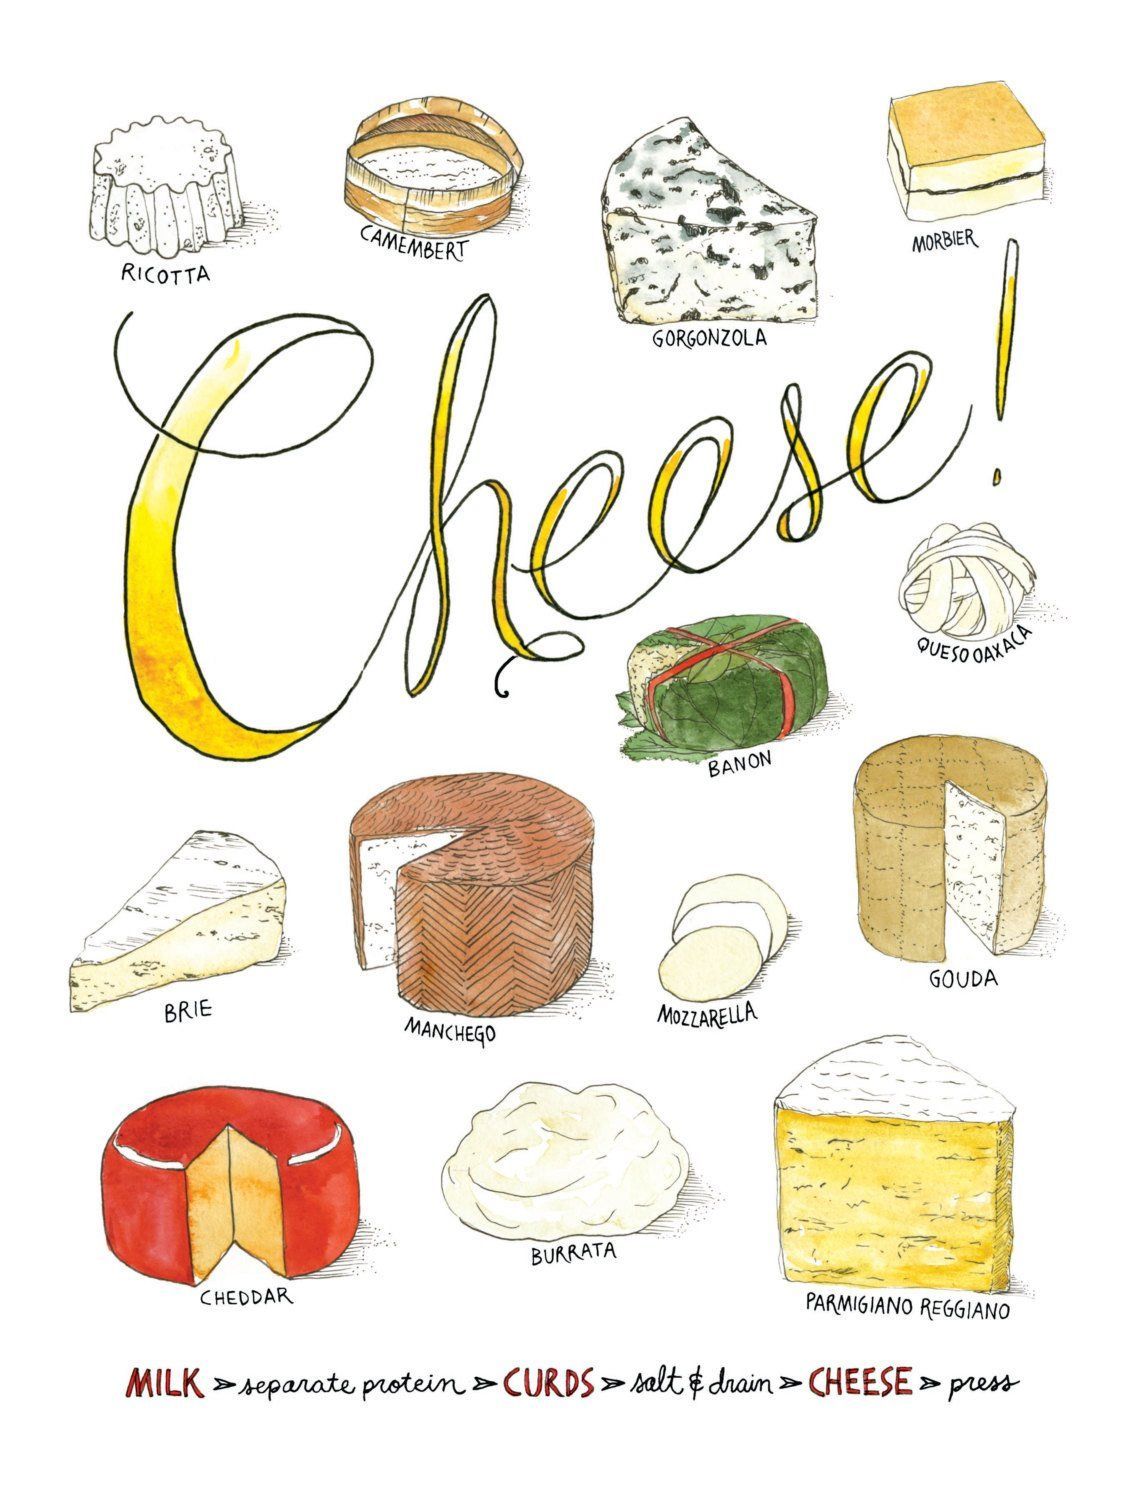 RICOTTA
CAMEMBERT
GORGONZOLA
MORBIER
Cheese!
QUESO OAXACA
BANON
BRIE
MANCHEGO
MOZZARELLA
GOUDA
CHEDDAR
BURRATA
PARMIGIANO REGGIANO
MILK > separate protein > CURDS > salt & drain > CHEESE > press